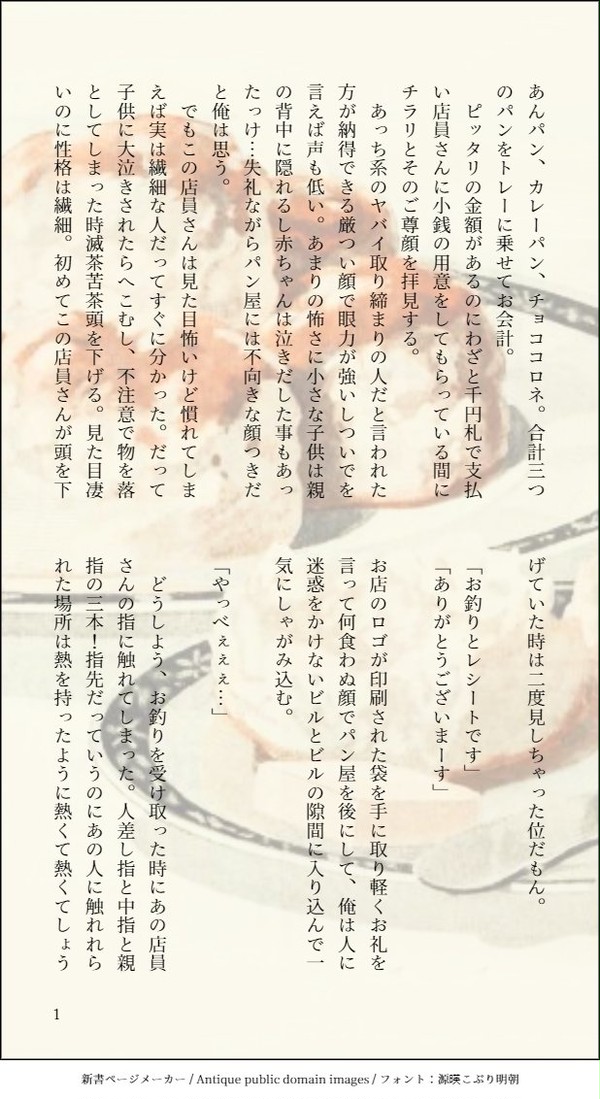 あんパン、カレーパン、チョココロネ。合計三つ
のパンをトレーに乗せてお会計。
　ピッタリの金額があるのにわざと千円札で支払
い店員さんに小銭の用意をしてもらっている間に
チラリとそのご尊顔を拝見する。
　あっち系のヤバイ取り締まりの人だと言われた
方が納得できる厳つい顔で眼力が強いしついでを
言えば声も低い。あまりの怖さに小さな子供は親
の背中に隠れるし赤ちゃんは泣きだした事もあっ
たっけ…失礼ながらパン屋には不向きな顔つきだ
と俺は思う。
　でもこの店員さんは見た目怖いけど慣れてしま
えば実は繊細な人だってすぐに分かった。だって
子供に大泣きされたらへこむし、不注意で物を落
としてしまった時滅茶苦茶頭を下げる。見た目凄
いのに性格は繊細。初めてこの店員さんが頭を下
げていた時は二度見しちゃった位だもん。
「お釣りとレシートです」
「ありがとうございまーす」
お店のロゴが印刷された袋を手に取り軽くお礼を
言って何食わぬ顔でパン屋を後にして、俺は人に
迷惑をかけないビルとビルの隙間に入り込んで一
気にしゃがみ込む。
「やっべぇぇぇ…」
　どうしよう、お釣りを受け取った時にあの店員
さんの指に触れてしまった。人差し指と中指と親
指の三本！指先だっていうのにあの人に触れれら
れた場所は熱を持ったように熱くて熱くてしょう
1
新書ページメーカー / Antique public domain images / フォント：源暎こぶり明朝